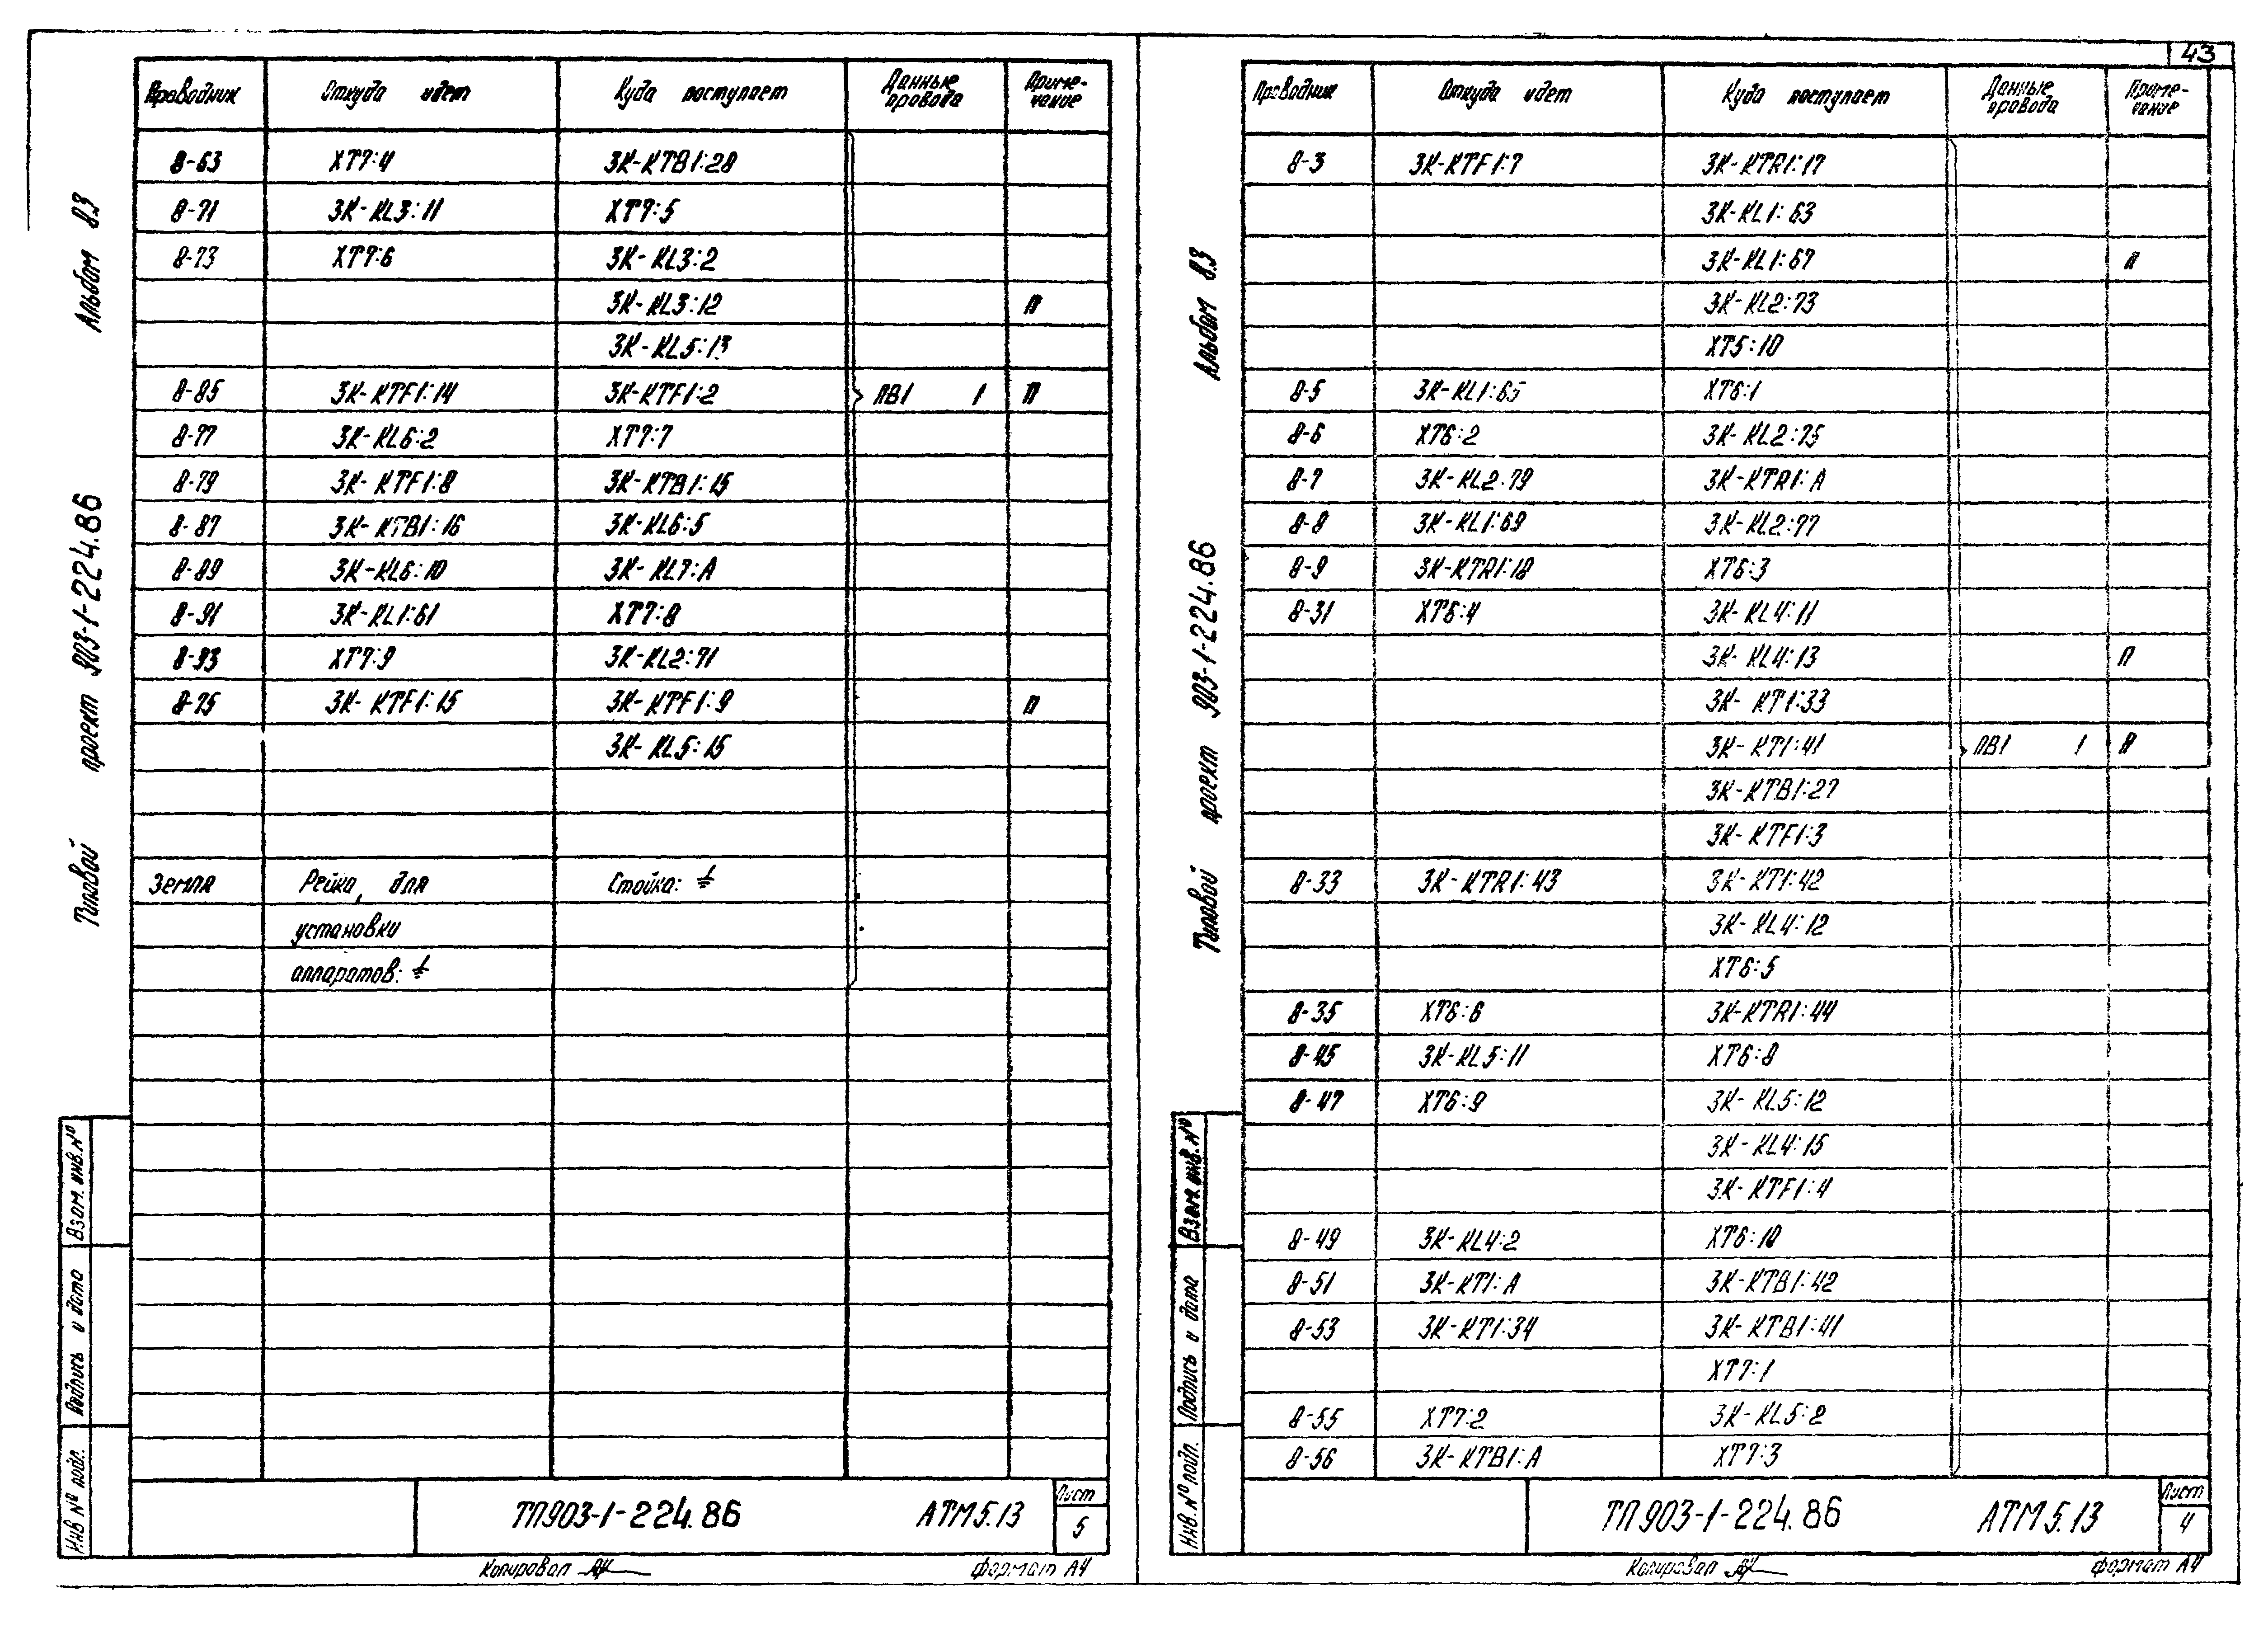 43
Альбом 8.3
Типовой проект 903-1-224.86
Взам. инв. №
Подпись и дата
Инв № подл.
Проводник Откуда идет Куда поступает Данные провода Примечание
8-63 XT7:4 3К-КТВ1:28
8-71 3К-KL3:11 XT7:5
8-73 XT7:6 3К-KL3:2
3К-KL3:12 П
3К-KL5:13
8-85 3К-KTF1:14 3К-KTF1:2 ПВ1 1 П
8-77 3К-KL6:2 XT7:7
8-79 3К-KTF1:8 3К-КТВ1:15
8-87 3К-КТВ1:16 3К-KL6:5
8-89 3К-KL6:10 3К-KL7:А
8-91 3К-KL1:61 XT7:8
8-93 XT7:9 3К-KL2:71
8-75 3К-KTF1:15 3К-KTF1:9 П
3К-KL5:15
Земля Рейка, для Стойка: ⏚
установки
аппаратов: ⏚
ТП903-1-224.86 АТМ5.13 Лист 5
Копировал Формат А4
Альбом 8.3
Типовой проект 903-1-224.86
Взам. инв. №
Подпись и дата
Инв. № подл.
Проводник Откуда идет Куда поступает Данные провода Примечание
8-3 3К-KTF1:7 3К-KTR1:17
3К-KL1:63
3К-KL1:67 П
3К-KL2:73
XT5:10
8-5 3К-KL1:65 XT6:1
8-6 XT6:2 3К-KL2:75
8-7 3К-KL2:79 3К-KTR1:А
8-8 3К-KL1:69 3К-KL2:77
8-9 3К-KTR1:18 XT6:3
8-31 XT6:4 3К-KL4:11
3К-KL4:13 П
3К-КТ1:33
3К-КТ1:41 ПВ1 1 П
3К-КТВ1:27
3К-KTF1:3
8-33 3К-KTR1:43 3К-КТ1:42
3К-KL4:12
XT6:5
8-35 XT6:6 3К-KTR1:44
8-45 3К-KL5:11 XT6:8
8-47 XT6:9 3К-KL5:12
3К-KL4:15
3К-KTF1:4
8-49 3К-KL4:2 XT6:10
8-51 3К-КТ1:А 3К-КТВ1:42
8-53 3К-КТ1:34 3К-КТВ1:41
XT7:1
8-55 XT7:2 3К-KL5:2
8-56 3К-КТВ1:А XT7:3
ТП903-1-224.86 АТМ5.13 Лист 4
Копировал Формат А4